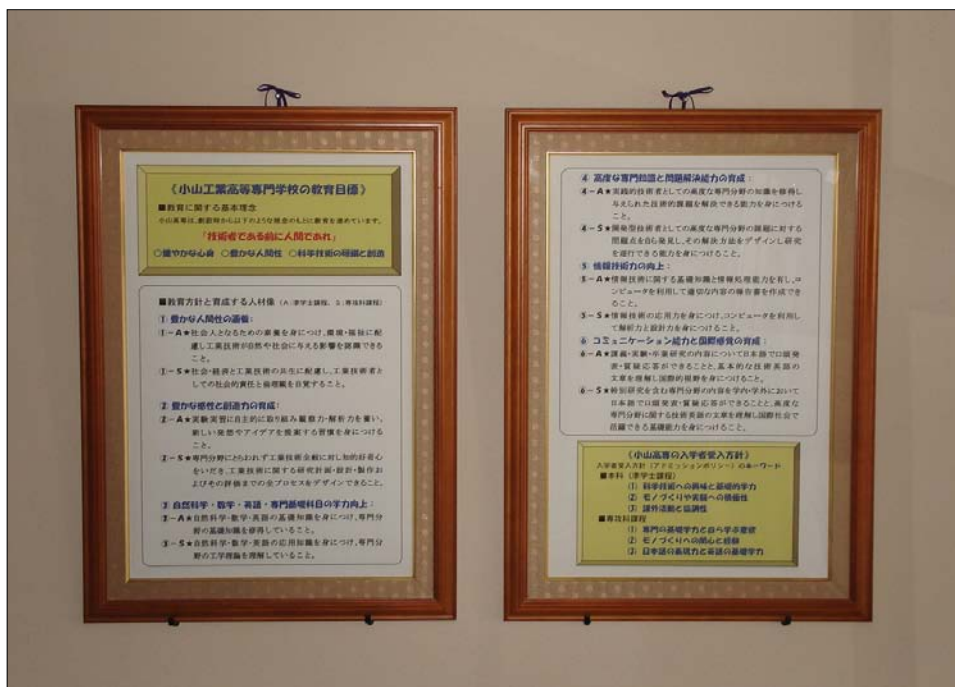 《小山工業高等専門学校の教育目標》
■教育に関する基本理念
小山高専は、創設時から以下のような理念のもとに教育を進めています。
「技術者である前に人間であれ」
○健やかな心身 ○豊かな人間性 ○科学技術の研鑽と創造
■教育方針と育成する人材像（A：準学士課程、S：専攻科課程）
① 豊かな人間性の涵養：
①－A★社会人となるための素養を身につけ、環境・福祉に配
慮し工業技術が自然や社会に与える影響を認識できる
こと。
①－S★社会・経済と工業技術の共生に配慮し、工業技術者と
しての社会的責任と倫理観を自覚すること。
② 豊かな感性と創造力の育成：
②－A★実験実習に自主的に取り組み観察力・解析力を養い、
新しい発想やアイデアを提案する習慣を身につける
こと。
②－S★専門分野にとらわれず工業技術全般に対し知的好奇心
をいだき、工業技術に関する研究計画・設計・製作お
よびその評価までの全プロセスをデザインできること。
③ 自然科学・数学・英語・専門基礎科目の学力向上：
③－A★自然科学・数学・英語の基礎知識を身につけ、専門分
野の基礎知識を修得していること。
③－S★自然科学・数学・英語の応用知識を身につけ、専門分
野の工学理論を理解していること。
④ 高度な専門知識と問題解決能力の育成：
④－A★実践的技術者としての高度な専門分野の知識を修得し
与えられた技術的課題を解決できる能力を身につける
こと。
④－S★開発型技術者としての高度な専門分野の課題に対する
問題点を自ら発見し、その解決方法をデザインし研究
を遂行できる能力を身につけること。
⑤ 情報技術力の向上：
⑤－A★情報技術に関する基礎知識と情報処理能力を有し、コ
ンピュータを利用して適切な内容の報告書を作成でき
ること。
⑤－S★情報技術の応用力を身につけ、コンピュータを利用し
て解析力と設計力を身につけること。
⑥ コミュニケーション能力と国際感覚の育成：
⑥－A★講義・実験・卒業研究の内容について日本語で口頭発
表・質疑応答ができることと、基本的な技術英語の
文章を理解し国際的視野を身につけること。
⑥－S★特別研究を含む専門分野の内容を学内・学外において
日本語で口頭発表・質疑応答ができることと、高度な
専門分野に関する技術英語の文章を理解し国際社会で
活躍できる基礎能力を身につけること。
《小山高専の入学者受入方針》
入学者受入方針（アドミッションポリシー）のキーワード
■本科（準学士課程）
① 科学技術への興味と基礎的学力
② モノづくりや実験への積極性
③ 課外活動と協調性
■専攻科課程
① 専門の基礎学力と自ら学ぶ意欲
② モノづくりへの関心と経験
③ 日本語の表現力と英語の基礎学力